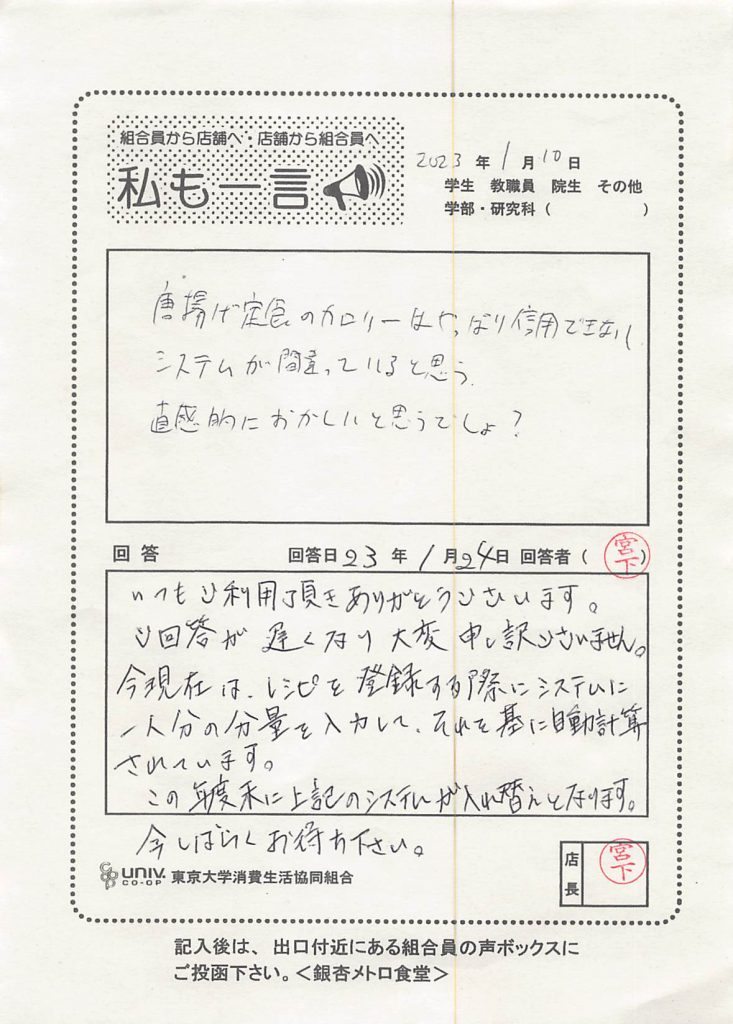 組合員から店舗へ・店舗から組合員へ
私も一言
2023年1月10日
学生 教職員 院生 その他
学部・研究科( )
唐揚げ定食のカロリーはやっぱり信用できない
システムが間違っていると思う.
直感的におかしいと思うでしょ?
回答 回答日23年1月24日 回答者(宮下)
いつもご利用頂きありがとうございます。
ご回答が遅くなり大変申し訳ございません。
今現在は、レシピを登録する際にシステムに
一人分の分量を入力して、それを基に自動計算
されています。
この年度末に上記のシステムが入れ替えとなります。
今しばらくお待ち下さい。
UNIV. CO-OP 東京大学消費生活協同組合
店長 宮下
記入後は、出口付近にある組合員の声ボックスに
ご投函下さい。<銀杏メトロ食堂>